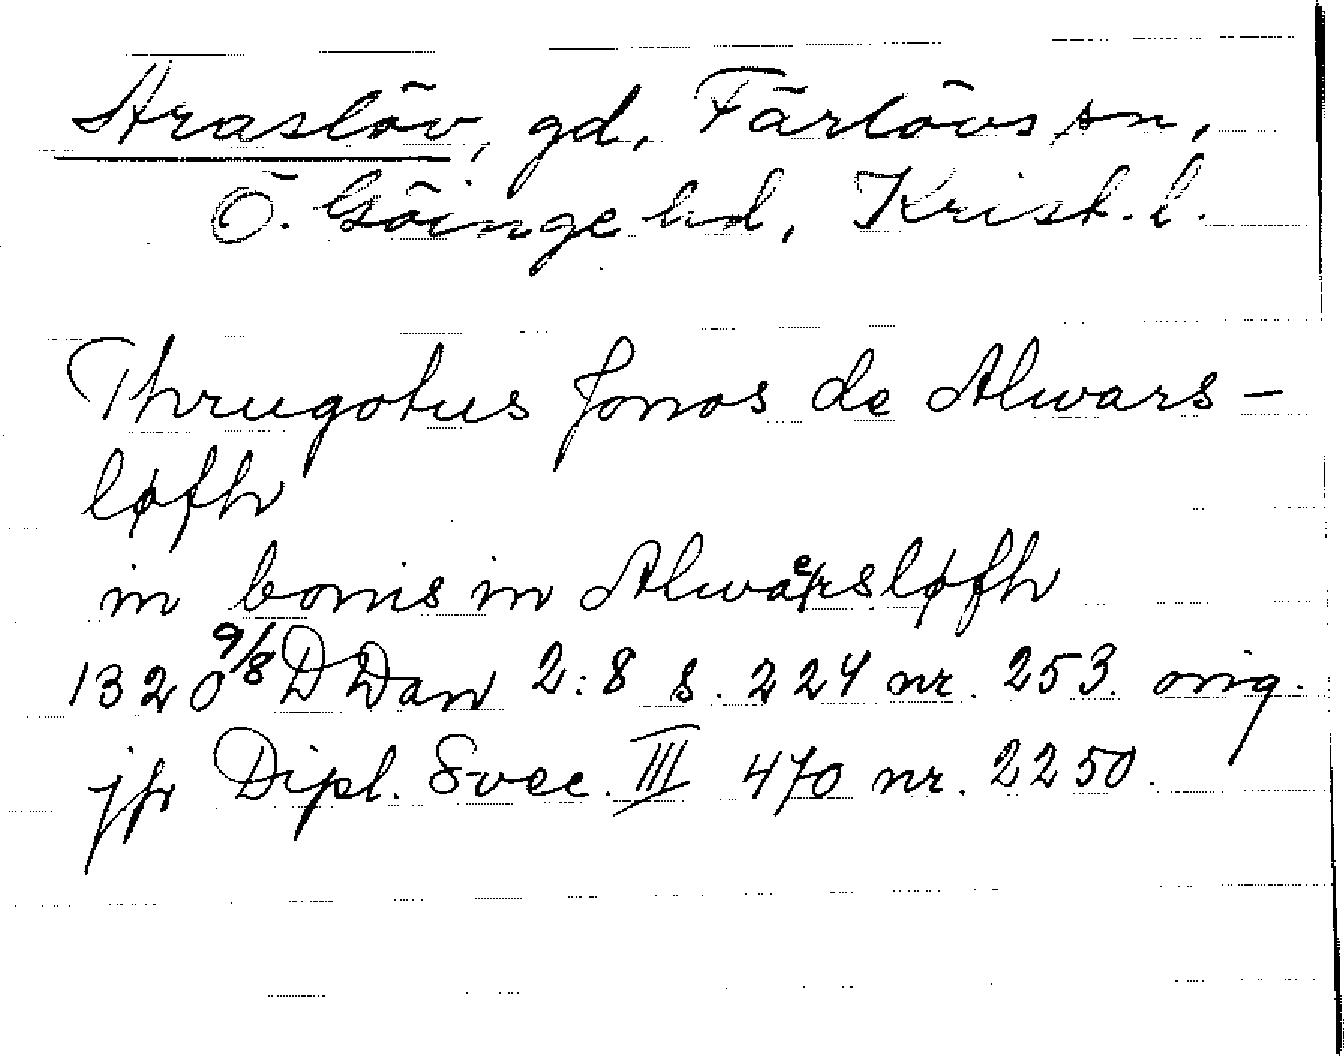 Araslöv, gd, Färlövs sn,
Ö. Göinge hd, Krist. l.
Thrugotus Jonos de Alwars-
løfh
in bonis in Alwaersløfh
1320 9/8 DDan 2:8 s. 224 nr. 253. orig.
jfr Dipl. Svec. III 470 nr. 2250.